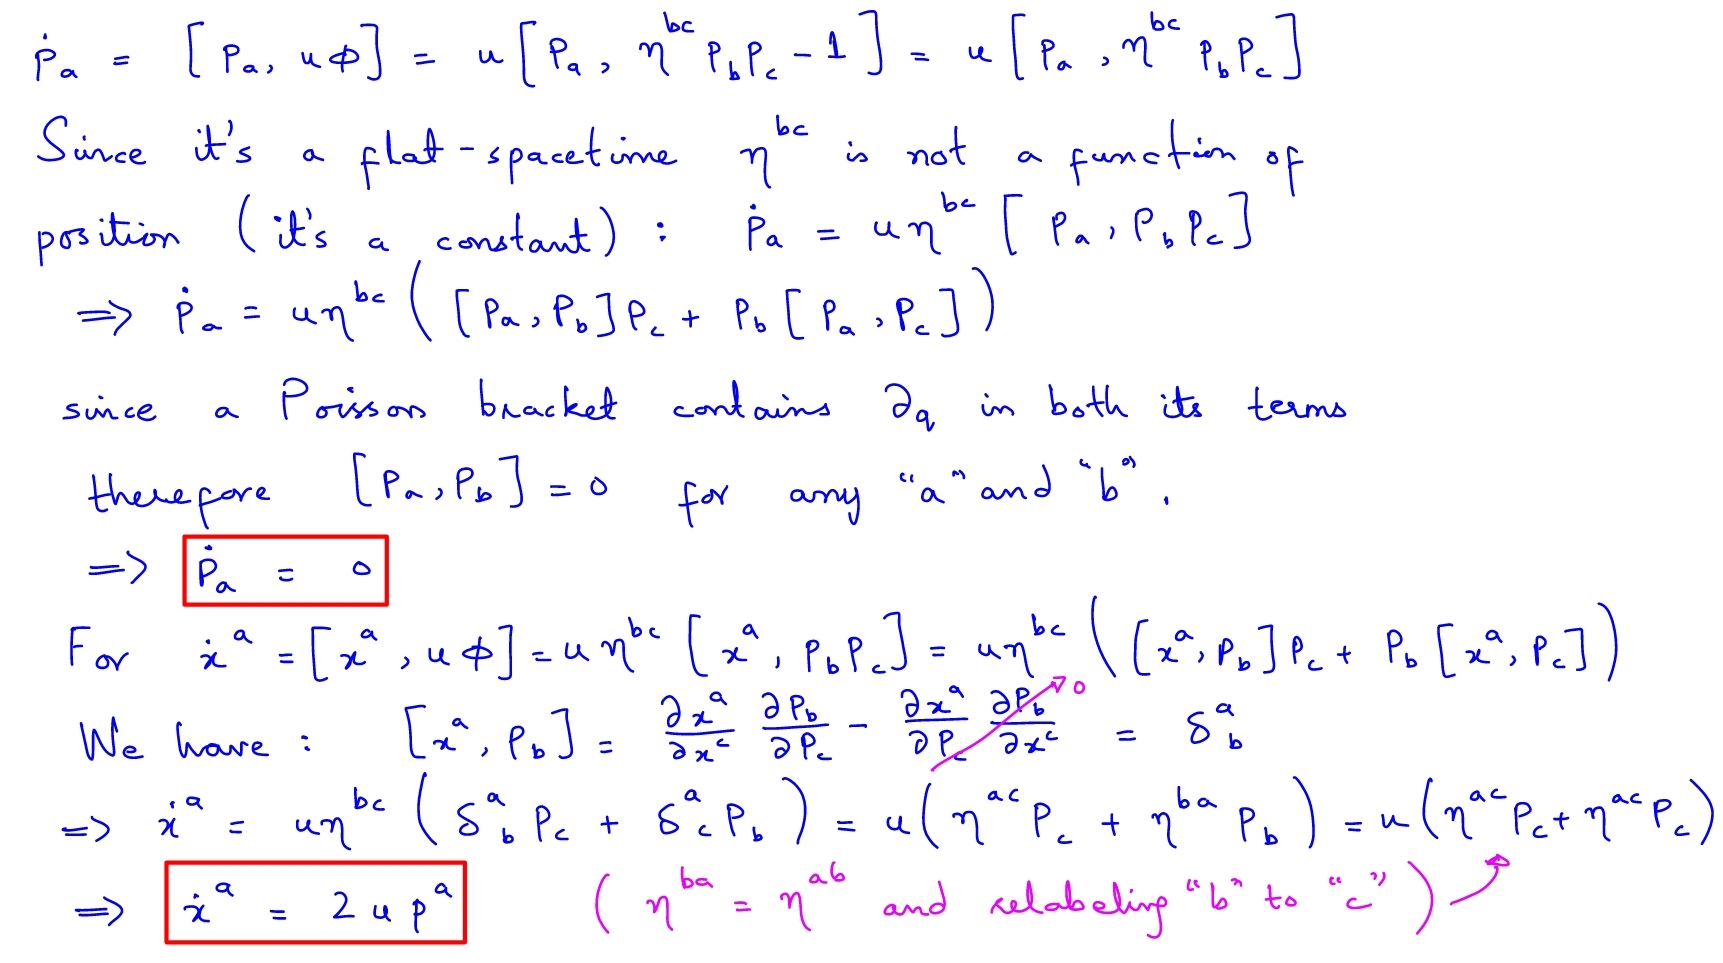 ṗₐ = [pₐ, uΦ] = u[pₐ, η^{bc} p_b p_c − 1] = u[pₐ, η^{bc} p_b p_c]
Since it's a flat-spacetime η^{bc} is not a function of
position (it's a constant) : ṗₐ = uη^{bc} [pₐ, p_b p_c]
⇒ ṗₐ = uη^{bc} ([pₐ, p_b] p_c + p_b [pₐ, p_c])
since a Poisson bracket contains ∂_q in both its terms
therefore [pₐ, p_b] = 0 for any "a" and "b".
⇒ ṗₐ = 0
For ẋ^a = [x^a, uΦ] = uη^{bc} [x^a, p_b p_c] = uη^{bc} ([x^a, p_b] p_c + p_b [x^a, p_c])
We have : [x^a, p_b] = ∂x^a/∂x^c ∂p_b/∂p_c − ∂x^a/∂p_c ∂p_b/∂x^c = δ^a_b
0
⇒ ẋ^a = uη^{bc} (δ^a_b p_c + δ^a_c p_b) = u(η^{ac} p_c + η^{ba} p_b) = u(η^{ac} p_c + η^{ac} p_c)
⇒ ẋ^a = 2 u p^a (η^{ba} = η^{ab} and relabeling "b" to "c")